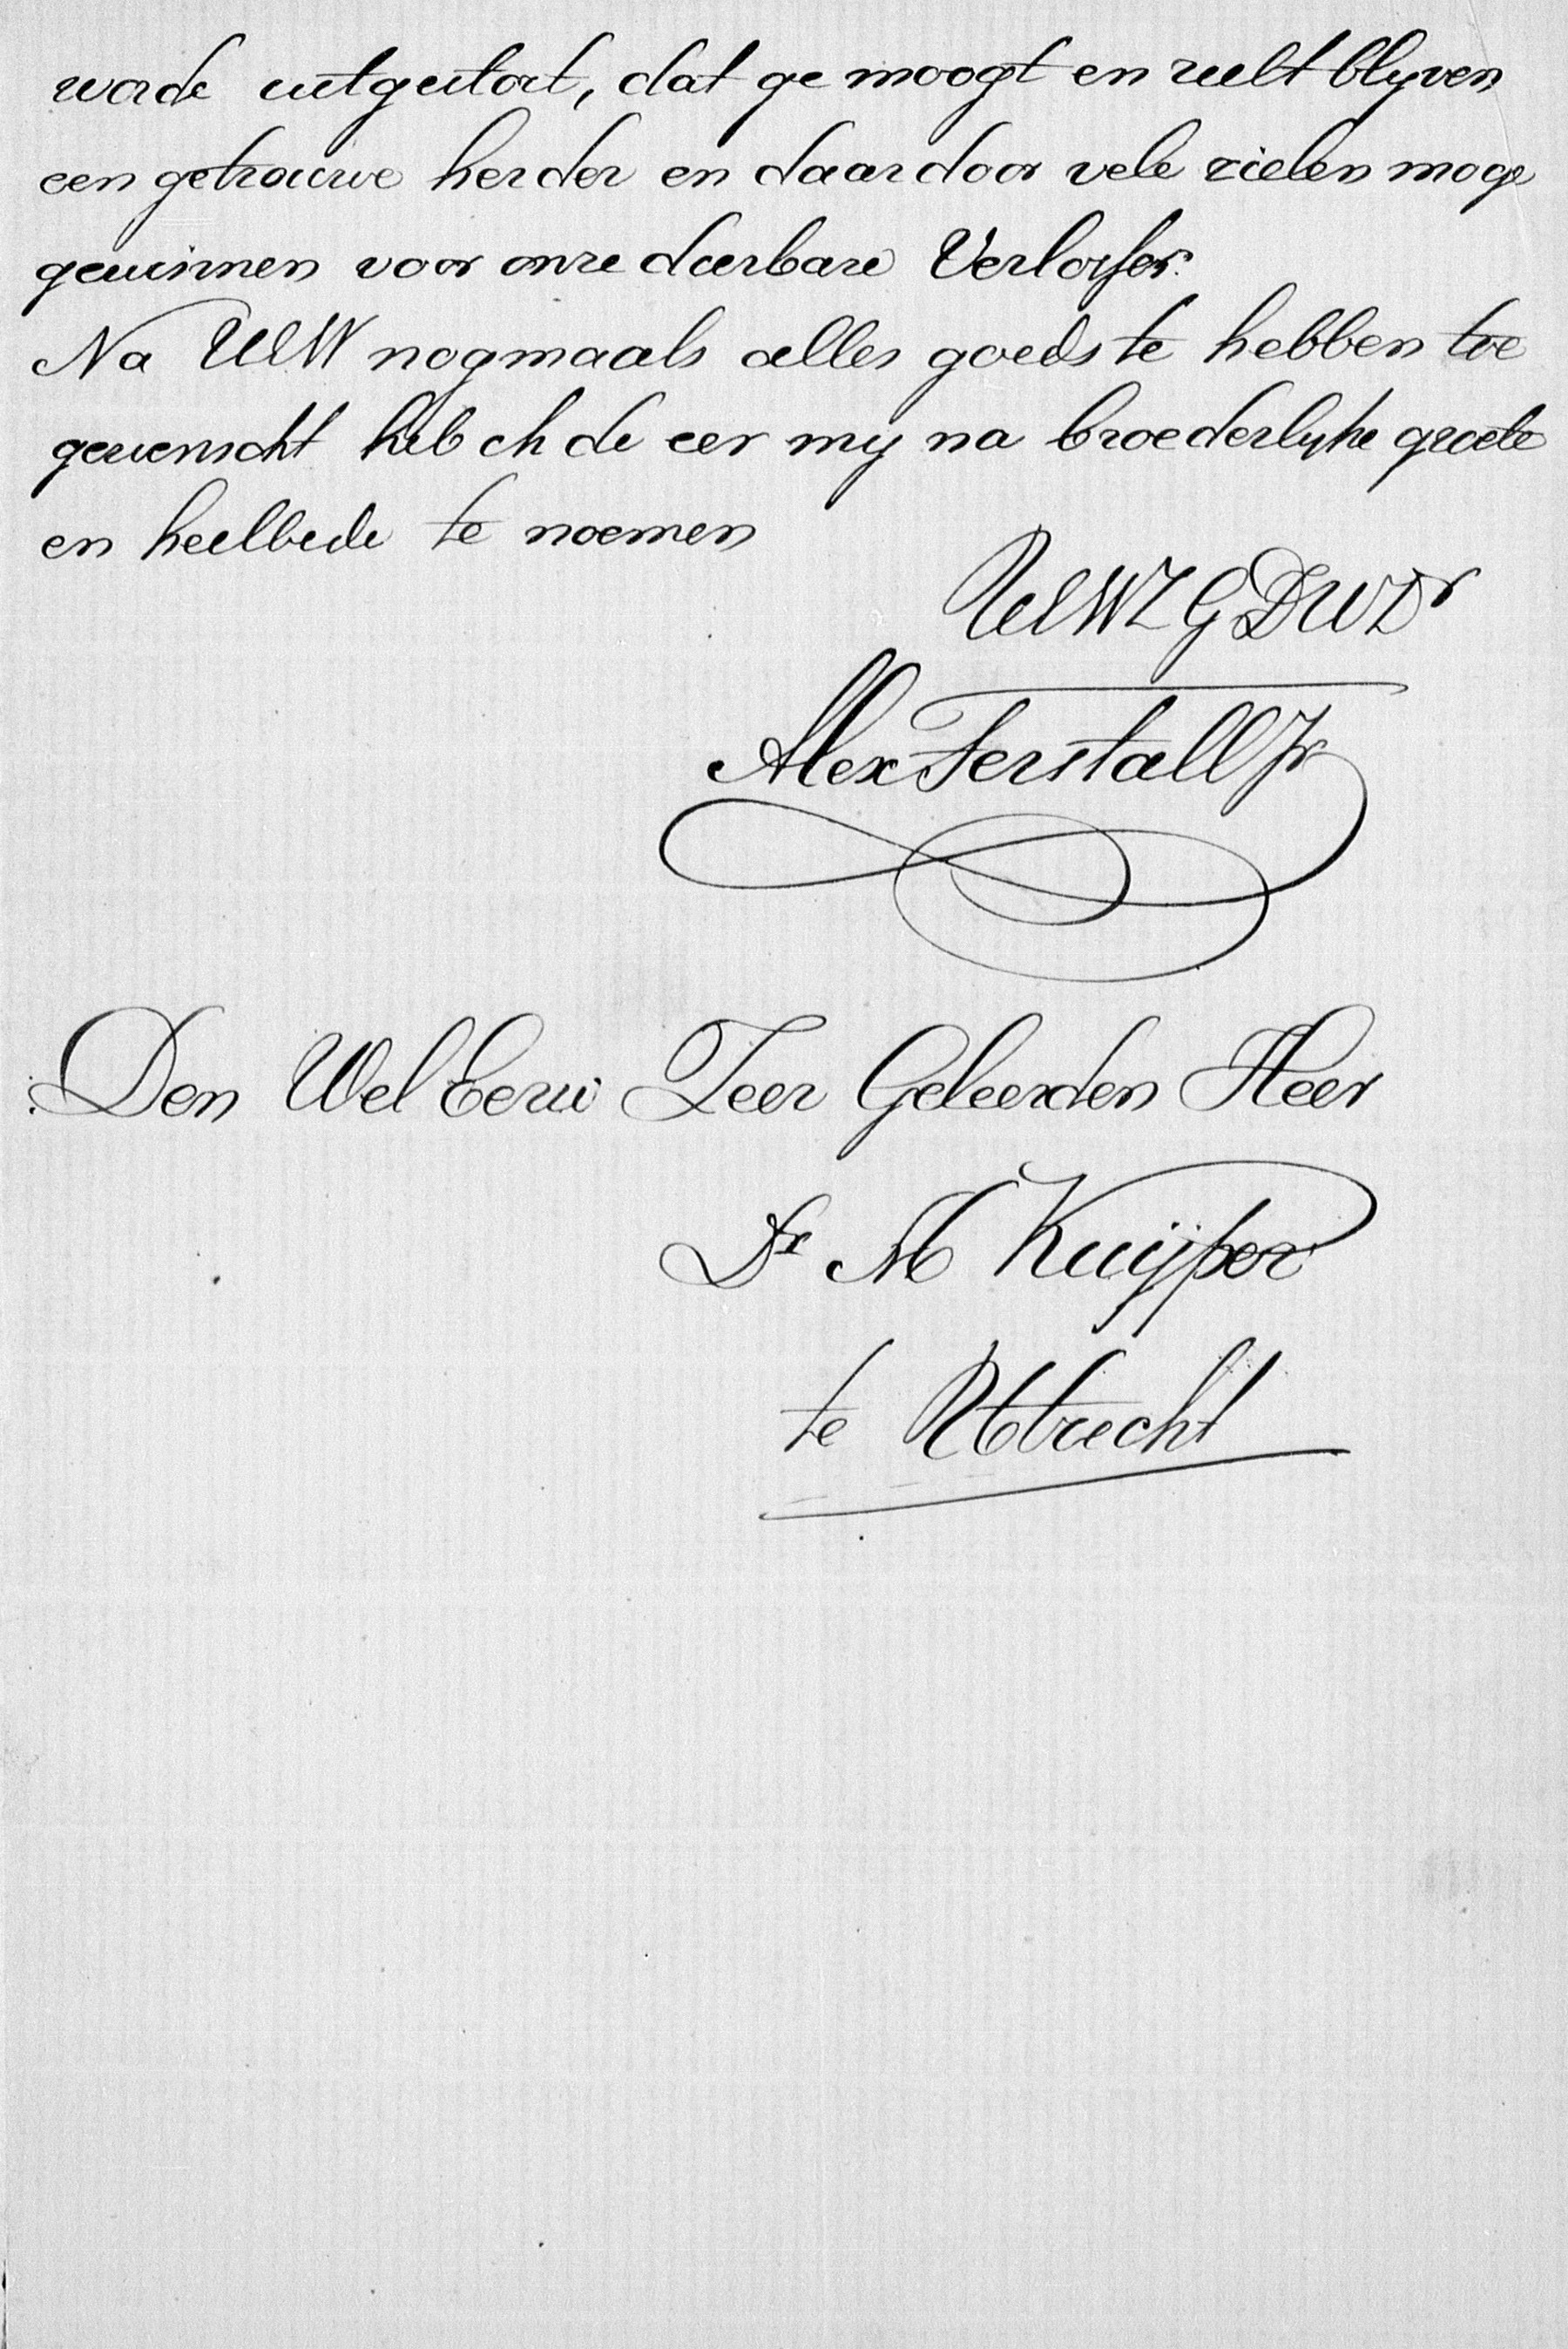 worde uitgestort, dat ge moogt en zult blyven
een getrouwe herder en daardoor vele zielen moge
gewinnen voor onze dierbare Verlosser.
Na UEW nogmaals alles goeds te hebben toe
gewenscht heb ik de eer my na broederlyke groete
en heilbede te noemen
UEWZGDWDr
Alex Ferstall Jr
Den WelEerw Zeer Geleerden Heer
Dr A Kuijper
te Utrecht